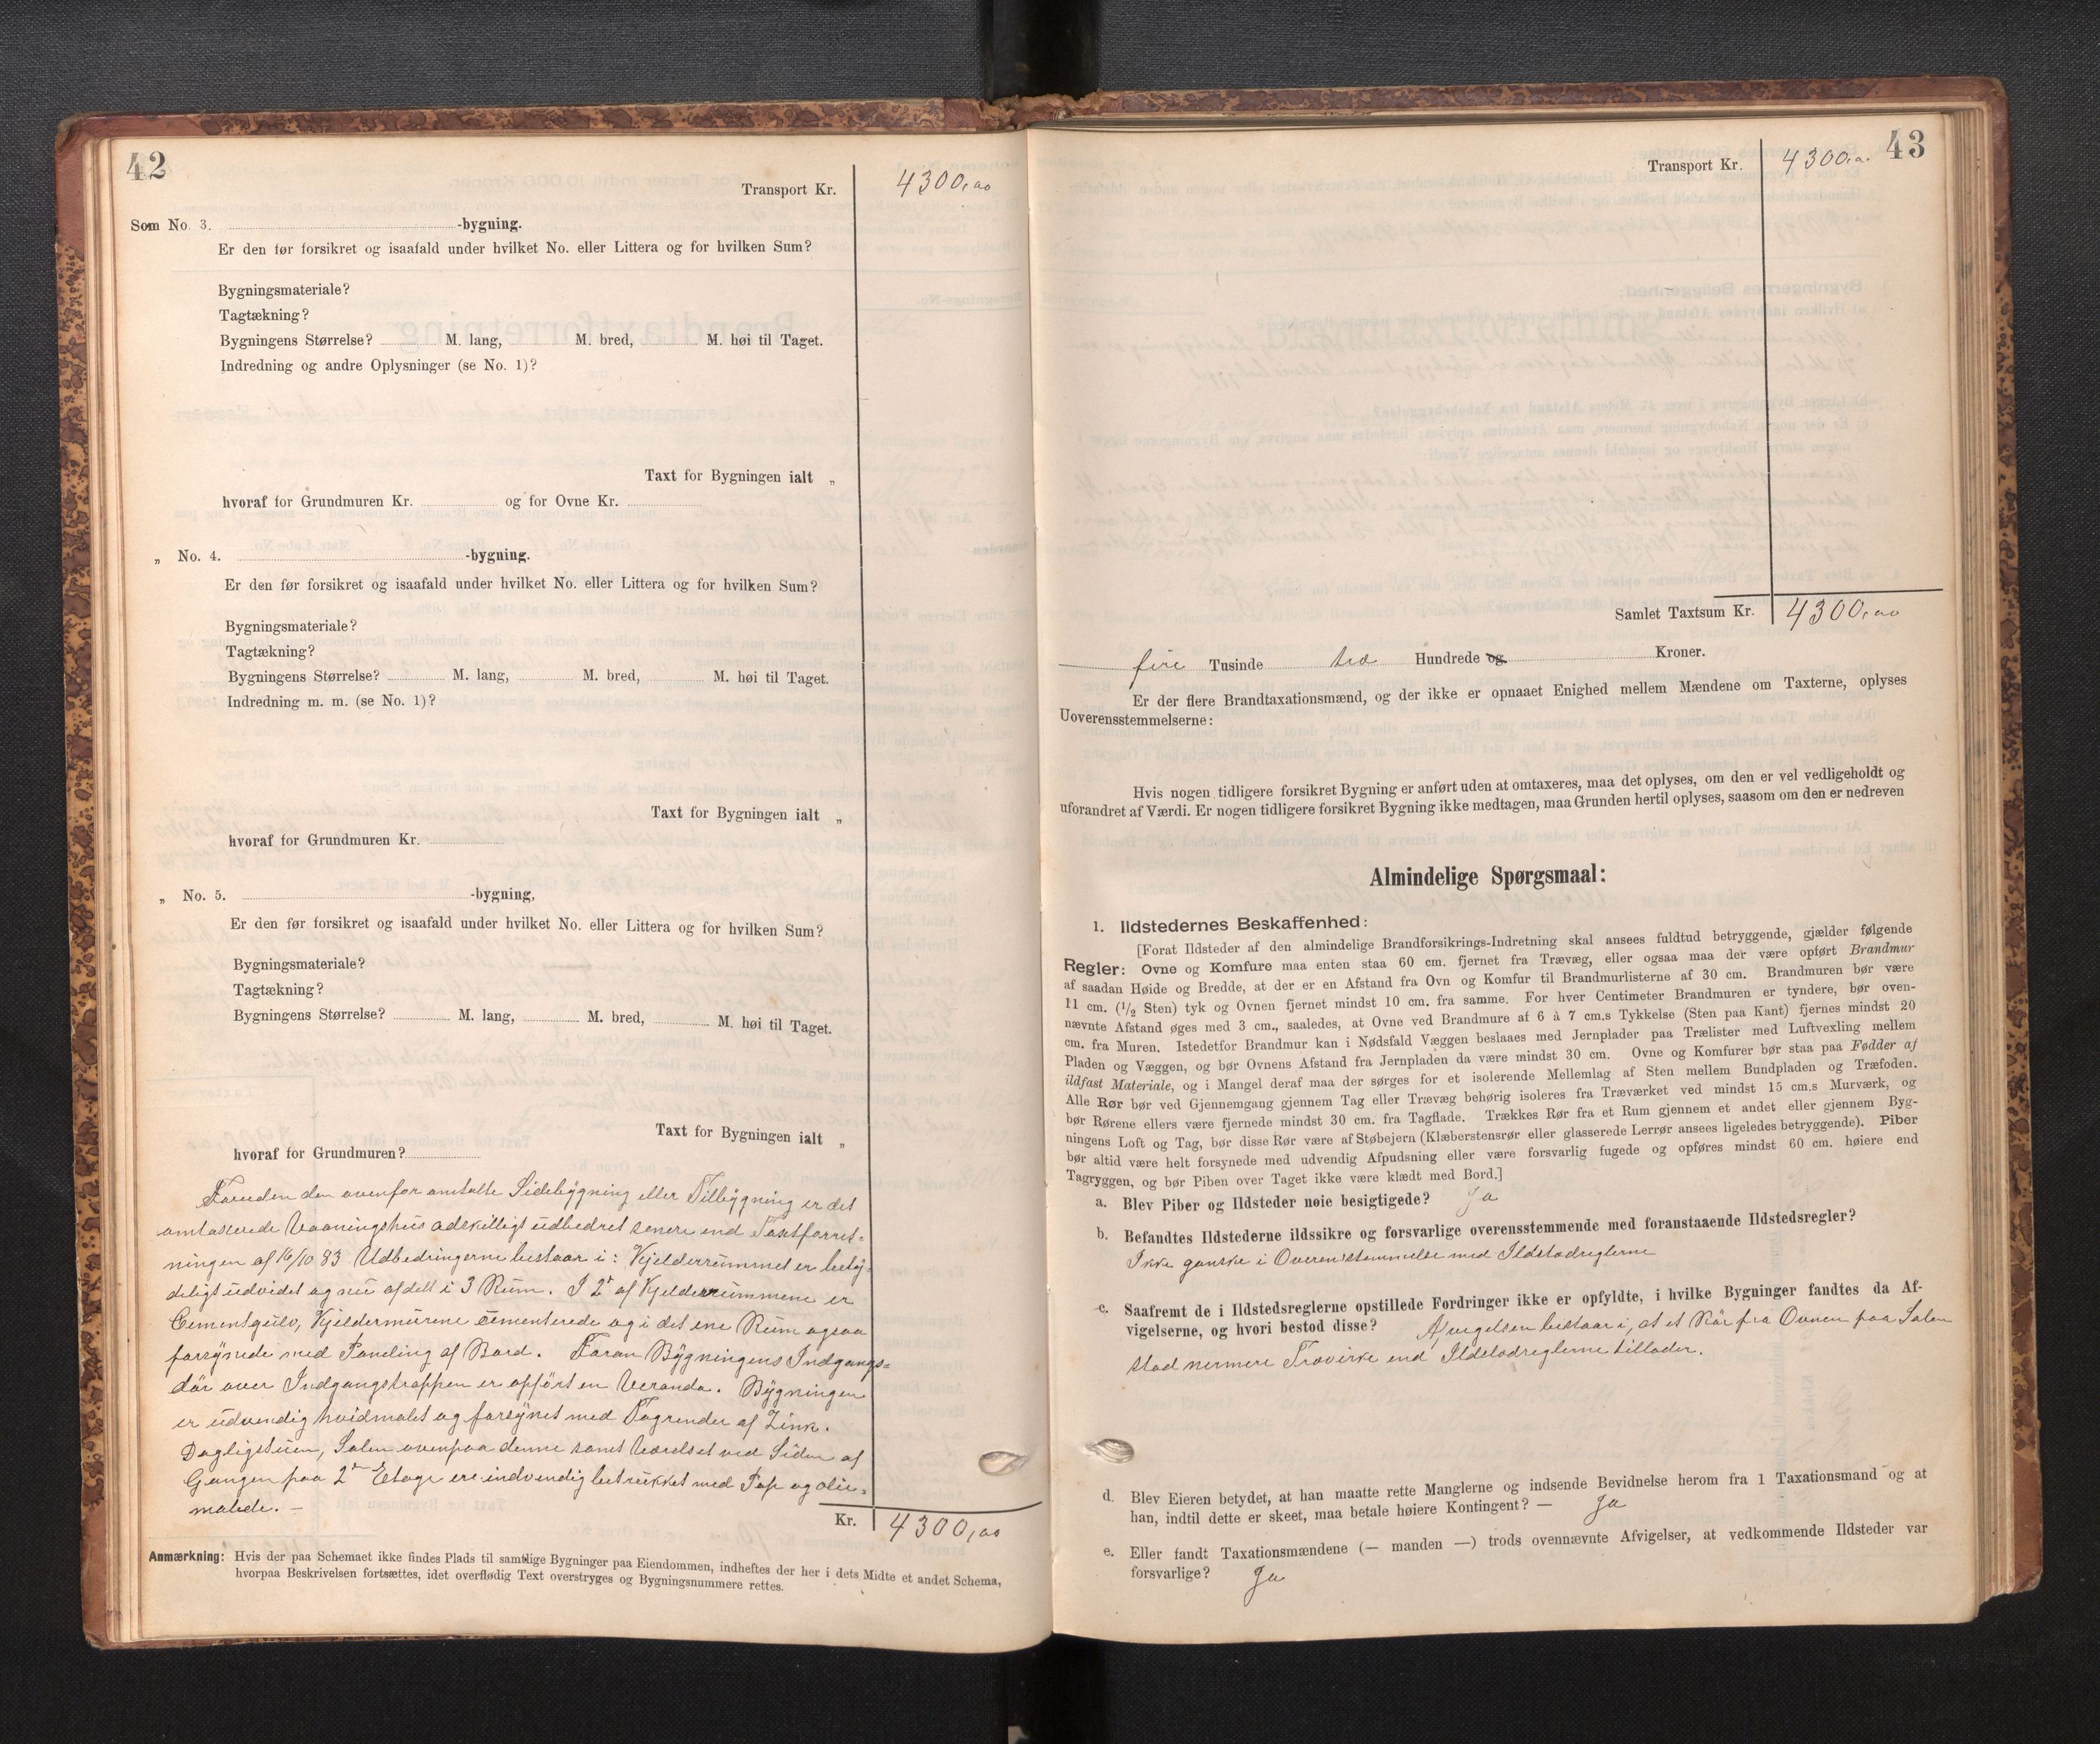 42
Transport Kr.
4300,00
Som No. 3. -bygning.
Er den før forsikret og isaafald under hvilket No. eller Littera og for hvilken Sum?
Bygningsmateriale?
Tagtækning?
Bygningens Størrelse? M. lang, M. bred, M. høi til Taget.
Indredning og andre Oplysninger (se No. 1)?
Taxt for Bygningen ialt „
hvoraf for Grundmuren Kr. og for Ovne Kr.
„ No. 4. -bygning.
Er den før forsikret og isaafald under hvilket No. eller Littera og for hvilken Sum?
Bygningsmateriale?
Tagtækning?
Bygningens Størrelse? M. lang, M. bred, M. høi til Taget.
Indredning m. m. (se No. 1)?
Taxt for Bygningen ialt „
hvoraf for Grundmuren Kr.
„ No. 5. -bygning,
Er den før forsikret og isaafald under hvilket No. eller Littera og for hvilken Sum?
Bygningsmateriale?
Tagtækning?
Bygningens Størrelse? M. lang, M. bred, M. høi til Taget.
Taxt for Bygningen ialt „
hvoraf for Grundmuren?
Foruden den ovenfor omtalte Sidebygning eller Tilbygning er det
omtaxerede Vaaningshus adskilligt udbedret senere end Taxtforret-
ningen af 16/10 83 Udbedringerne bestaar i: Kjelderrummet er bety-
deligt udvidet og nu afdelt i 3 Rum. I 2 af Kjelderrummene er
Cementgulv, Kjeldermurene cementerede og i det ene Rum ogsaa
forsynede med Paneling af Bord. Foran Bygningens Indgangs-
dör over Indgangstrappen er opført en Veranda. Bygningen
er udvendig hvidmalet og forsynet med Tagrender af Zink.
Dagligstuen, Salen ovenpaa denne samt Værelset ved Siden af
Gangen paa 2den Etage ere indvendig betrukket med Pap og olie-
malede. —
Kr.
4300,00
Anmærkning: Hvis der paa Schemaet ikke findes Plads til samtlige Bygninger paa Eiendommen, indheftes der her i dets Midte et andet Schema,
hvorpaa Beskrivelsen fortsættes, idet overflødig Text overstryges og Bygningsnummere rettes.
43
Transport Kr.
4300,00
Samlet Taxtsum Kr.
4300,00
fire Tusinde tre Hundrede og Kroner.
Er der flere Brandtaxationsmænd, og der ikke er opnaaet Enighed mellem Mændene om Taxterne, oplyses
Uoverensstemmelserne:
Hvis nogen tidligere forsikret Bygning er anført uden at omtaxeres, maa det oplyses, om den er vel vedligeholdt og
uforandret af Værdi. Er nogen tidligere forsikret Bygning ikke medtagen, maa Grunden hertil oplyses, saasom om den er nedreven
Almindelige Spørgsmaal:
1. Ildstedernes Beskaffenhed:
[Forat Ildsteder af den almindelige Brandforsikrings-Indretning skal ansees fuldtud betryggende, gjælder følgende
Regler: Ovne og Komfure maa enten staa 60 cm. fjernet fra Trævæg, eller ogsaa maa der være opført Brandmur
af saadan Høide og Bredde, at der er en Afstand fra Ovn og Komfur til Brandmurlisterne af 30 cm. Brandmuren bør være
11 cm. (1/2 Sten) tyk og Ovnen fjernet mindst 10 cm. fra samme. For hver Centimeter Brandmuren er tyndere, bør oven-
nævnte Afstand øges med 3 cm., saaledes, at Ovne ved Brandmure af 6 à 7 cm.s Tykkelse (Sten paa Kant) fjernes mindst 20
cm. fra Muren. Istedetfor Brandmur kan i Nødsfald Væggen beslaaes med Jernplader paa Trælister med Luftvexling mellem
Pladen og Væggen, og bør Ovnens Afstand fra Jernpladen da være mindst 30 cm. Ovne og Komfurer bør staa paa Fødder af
ildfast Materiale, og i Mangel deraf maa der sørges for et isolerende Mellemlag af Sten mellem Bundpladen og Træfoden.
Alle Rør bør ved Gjennemgang gjennem Tag eller Trævæg behørig isoleres fra Træværket ved mindst 15 cm.s Murværk, og
bør Rørene ellers være fjernede mindst 30 cm. fra Tagflade. Trækkes Rør fra et Rum gjennem et andet eller gjennem Byg-
ningens Loft og Tag, bør disse Rør være af Støbejern (Klæberstensrør eller glasserede Lerrør ansees ligeledes betryggende). Piber
bør altid være helt forsynede med udvendig Afpudsning eller være forsvarlig fugede og opføres mindst 60 cm. høiere end
Tagryggen, og bør Piben over Taget ikke være klædt med Bord.]
a. Blev Piber og Ildsteder nøie besigtigede? Ja
b. Befandtes Ildstederne ildssikre og forsvarlige overensstemmende med foranstaaende Ildstedsregler?
Ikke ganske i Overensstemmelse med Ildstedreglerne
c. Saafremt de i Ildstedsreglerne opstillede Fordringer ikke er opfyldte, i hvilke Bygninger fandtes da Af-
vigelserne, og hvori bestod disse? Afvigelsen bestaar i, at et Rör fra Ovnen paa Salen
stod nermere Trævirke end Ildstedreglerne tillader.
d. Blev Eieren betydet, at han maatte rette Manglerne og indsende Bevidnelse herom fra 1 Taxationsmand og at
han, indtil dette er skeet, maa betale høiere Kontingent? — Ja
e. Eller fandt Taxationsmændene (— manden —) trods ovennævnte Afvigelser, at vedkommende Ildsteder var
forsvarlige? Ja